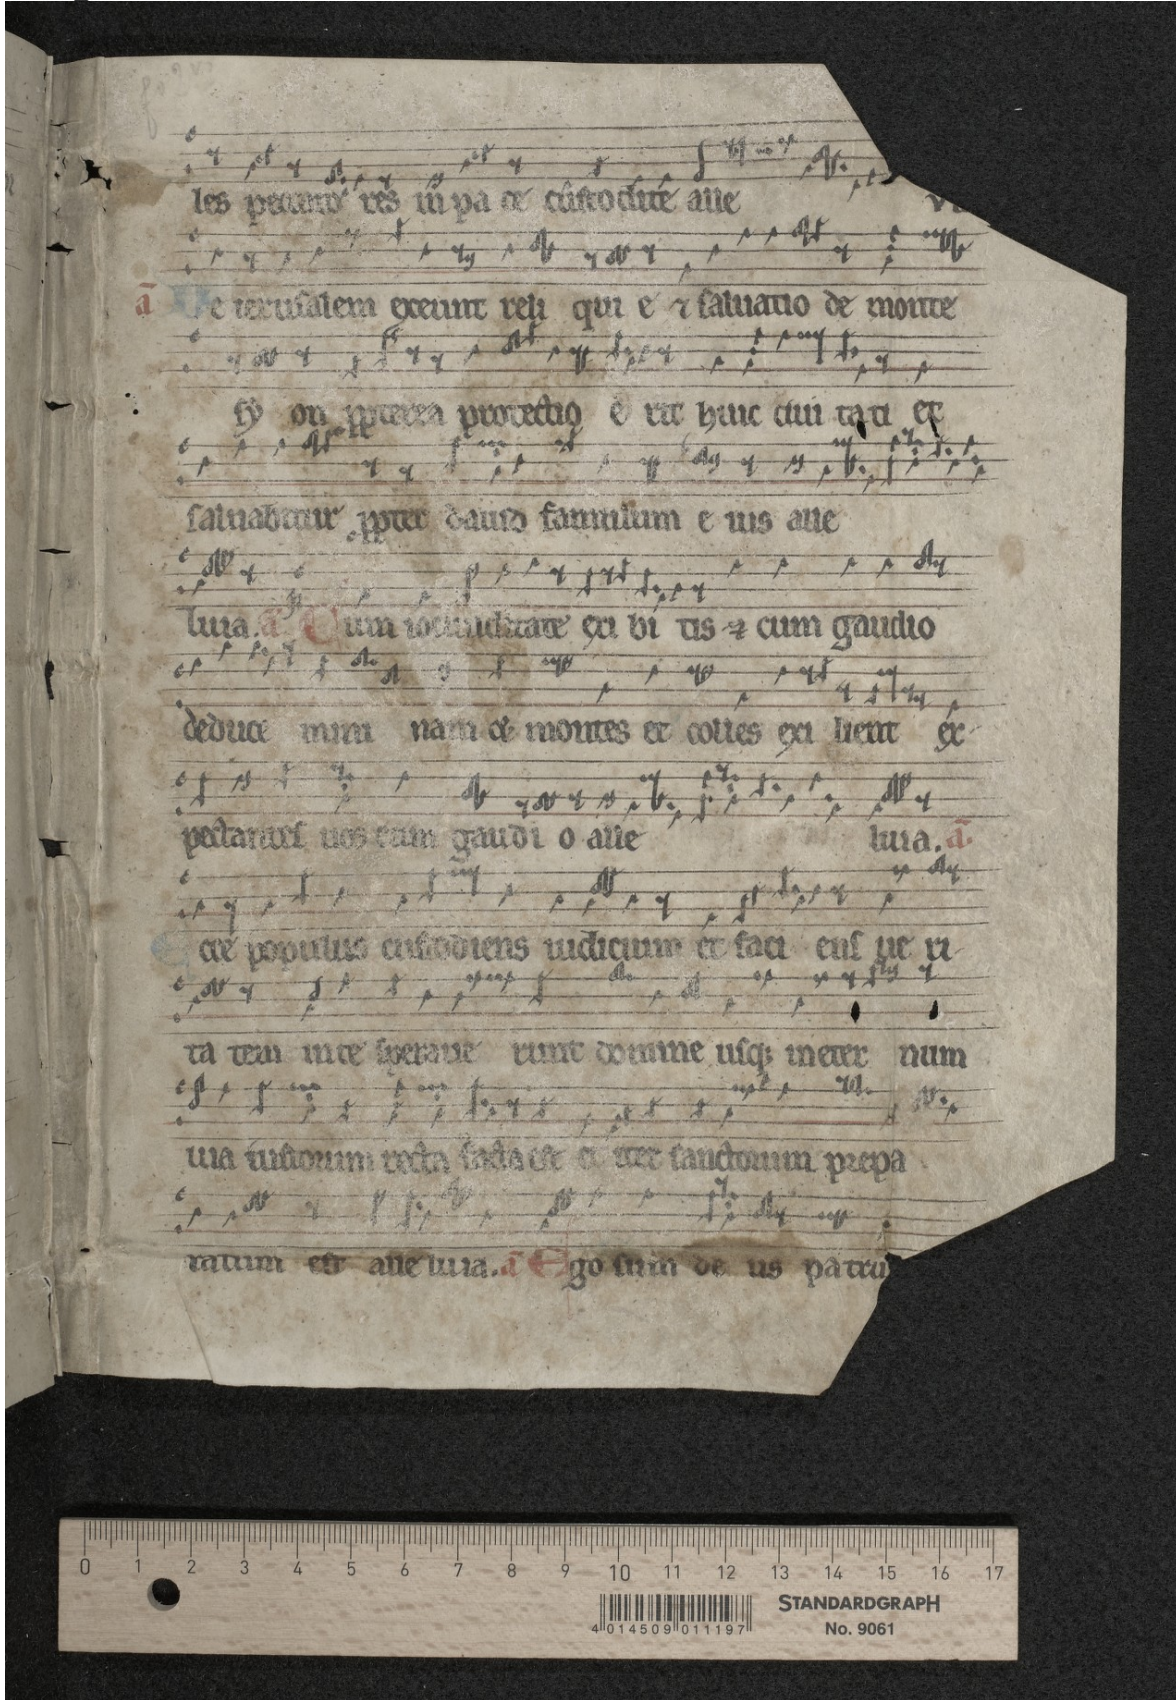 les peccato res in pa ce custodite alle
a De ierusalem exeunt reli qui e ⁊ saluatio de monte
sy on ꝓpterea protectio e rit huic ciui tati et
saluabitur ꝓpter dauid famulum e ius alle
luia. a Cum iocunditate exi bi tis ⁊ cum gaudio
deduce mini nam ⁊ montes et colles exi lient ex
pectantes uos cum gaudi o alle luia. a
E cce populus custodiens iudicium et faci ens ue ri
ta tem in te speraue runt domine usq; in eter num
uia iustorum recta facta est et iter sanctorum prepa
ratum est alle luia. a Ego sum de us patru
0 1 2 3 4 5 6 7 8 9 10 11 12 13 14 15 16 17
4 014509 011197
STANDARDGRAPH
No. 9061